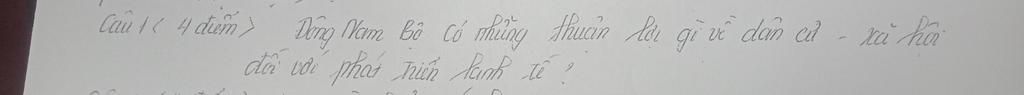 Câu 1 < 4 điểm > Đông Nam Bộ có những thuận lợi gì về dân cư - xã hội
đối với phát triển kinh tế ?